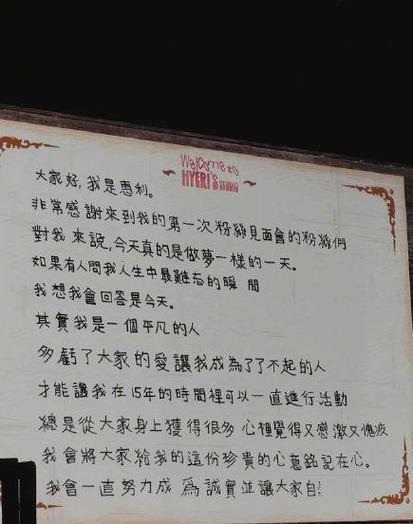 Welcome to
HYERI'S STUDIO
大家好,我是惠利。
非常感謝來到我的第一次粉絲見面會的粉絲們
對我來說,今天真的是做夢一樣的一天。
如果有人問我人生中最難忘的瞬間
我想我會回答是今天。
其實我是一個平凡的人
多虧了大家的愛讓我成為了了不起的人
才能讓我在15年的時間裡可以一直進行活動
總是從大家身上獲得很多 心裡覺得又感激又愧疚
我會將大家給我的這份珍貴的心意銘記在心。
我會一直努力成為誠實並讓大家自